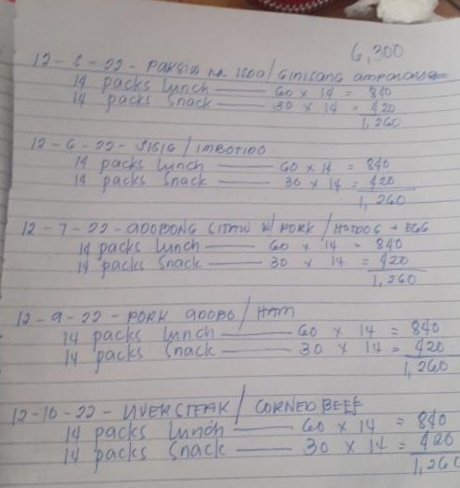 6,300
12-5-22 - PAKSIW NA ISDA / GINISANG ampalaya
14 packs Lunch —— 60 x 14 = 840
14 packs Snack —— 30 x 14 = 420
1,260
12-6-22 - SISIG / IMBOTIDO
14 packs Lunch —— 60 x 14 = 840
14 packs Snack —— 30 x 14 = 420
1,260
12-7-22 - ADOBONG SITAW w/ PORK / HOTDOG + EGG
14 packs Lunch —— 60 x 14 = 840
14 packs Snack —— 30 x 14 = 420
1,260
12-9-22 - PORK ADOBO / HAM
14 packs Lunch —— 60 x 14 = 840
14 packs Snack —— 30 x 14 = 420
1,260
12-10-22 - LIVER STEAK / CORNED BEEF
14 packs Lunch —— 60 x 14 = 840
14 packs Snack —— 30 x 14 = 420
1,260